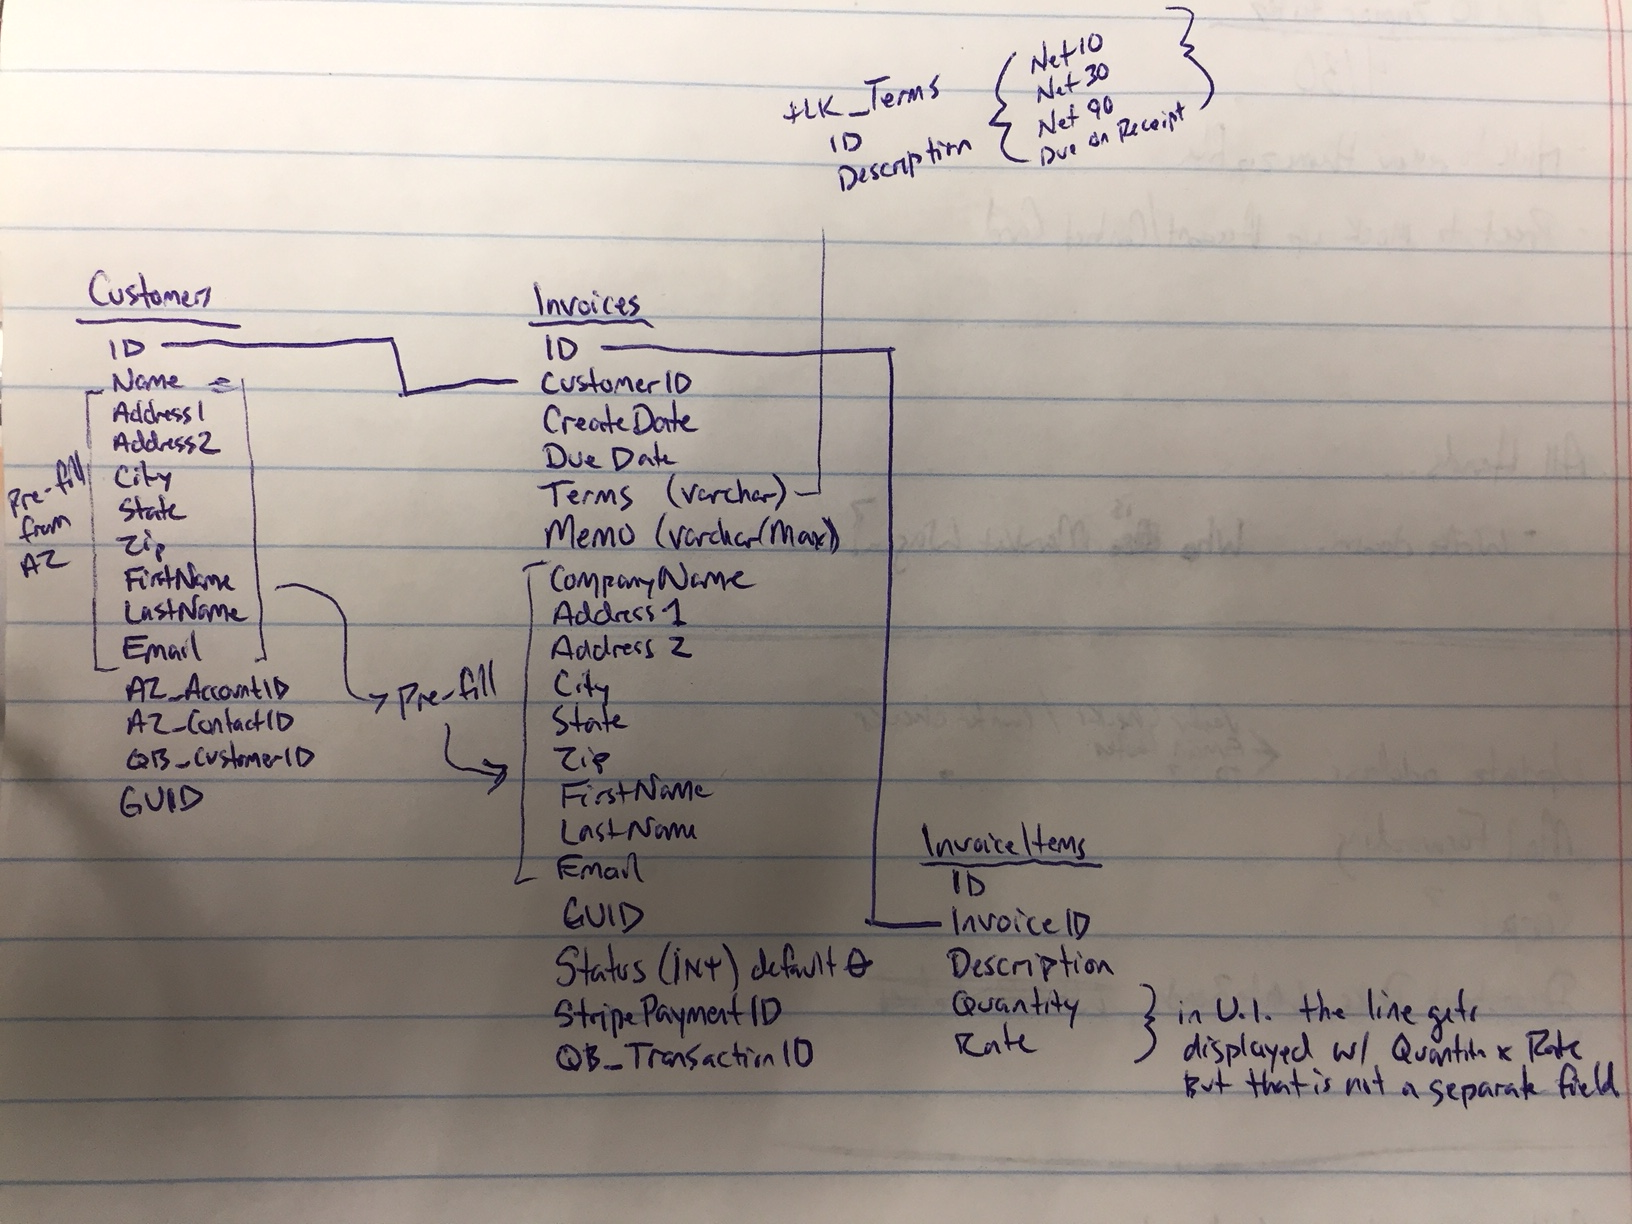 tLK_Terms
ID
Description
Net 10
Net 30
Net 90
Due on Receipt
Customers
ID
Name
Address1
Address2
City
State
Zip
FirstName
LastName
Email
AZ_AccountID
AZ_ContactID
QB_CustomerID
GUID
Pre-fill
from
AZ
Pre-fill
Invoices
ID
CustomerID
CreateDate
Due Date
Terms (varchar)
Memo (varchar(Max))
CompanyName
Address 1
Address 2
City
State
Zip
FirstName
LastName
Email
GUID
Status (INt) default 0
StripePaymentID
QB_TransactionID
InvoiceItems
ID
InvoiceID
Description
Quantity
Rate
in U.I. the line gets
displayed w/ Quantity x Rate
But that is not a separate field